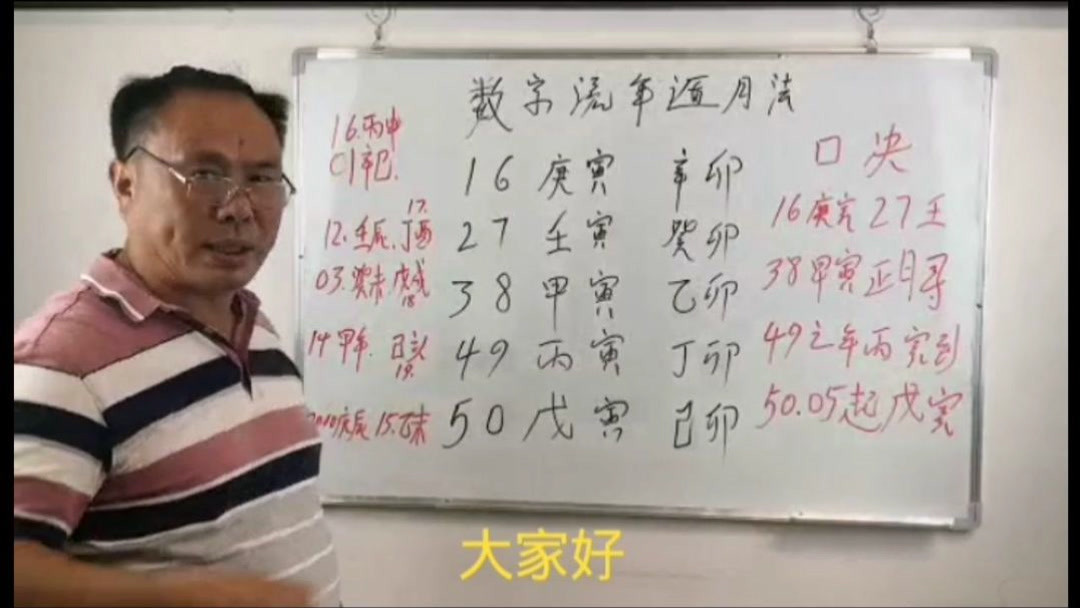 数字流年遁月法
16.丙申
01辛巳.
17.
12.壬辰.丁酉
03.癸未.戊戌
18
14甲午.己亥
19.
2010庚辰 15.乙未
16 庚寅 辛卯
27 壬寅 癸卯
38 甲寅 乙卯
49 丙寅 丁卯
50 戊寅 己卯
口决
16庚寅27壬
38甲寅正月寻
49之年丙寅到
50.05起戊寅
大家好